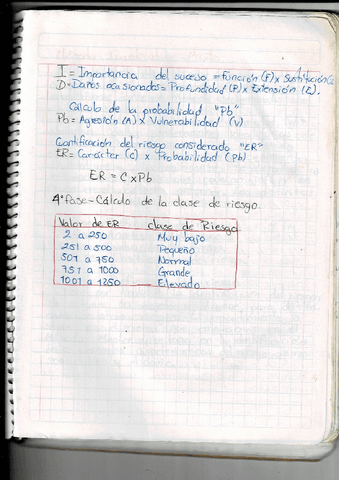 I = Importancia del suceso = Función (F) x Sustitución (S
D = Daños ocasionados = Profundidad (P) x Extensión (E).
Calculo de la probabilidad "Pb"
Pb = Agresión (A) x Vulnerabilidad (V)
Cuantificación del riesgo considerado "ER"
ER = Carácter (C) x Probabilidad (Pb)
ER = C x Pb
4° Fase - Cálculo de la clase de riesgo.
Valor de ER clase de Riesgo
2 a 250 Muy bajo
251 a 500 Pequeño
501 a 750 Normal
751 a 1000 Grande
1001 a 1250 Elevado